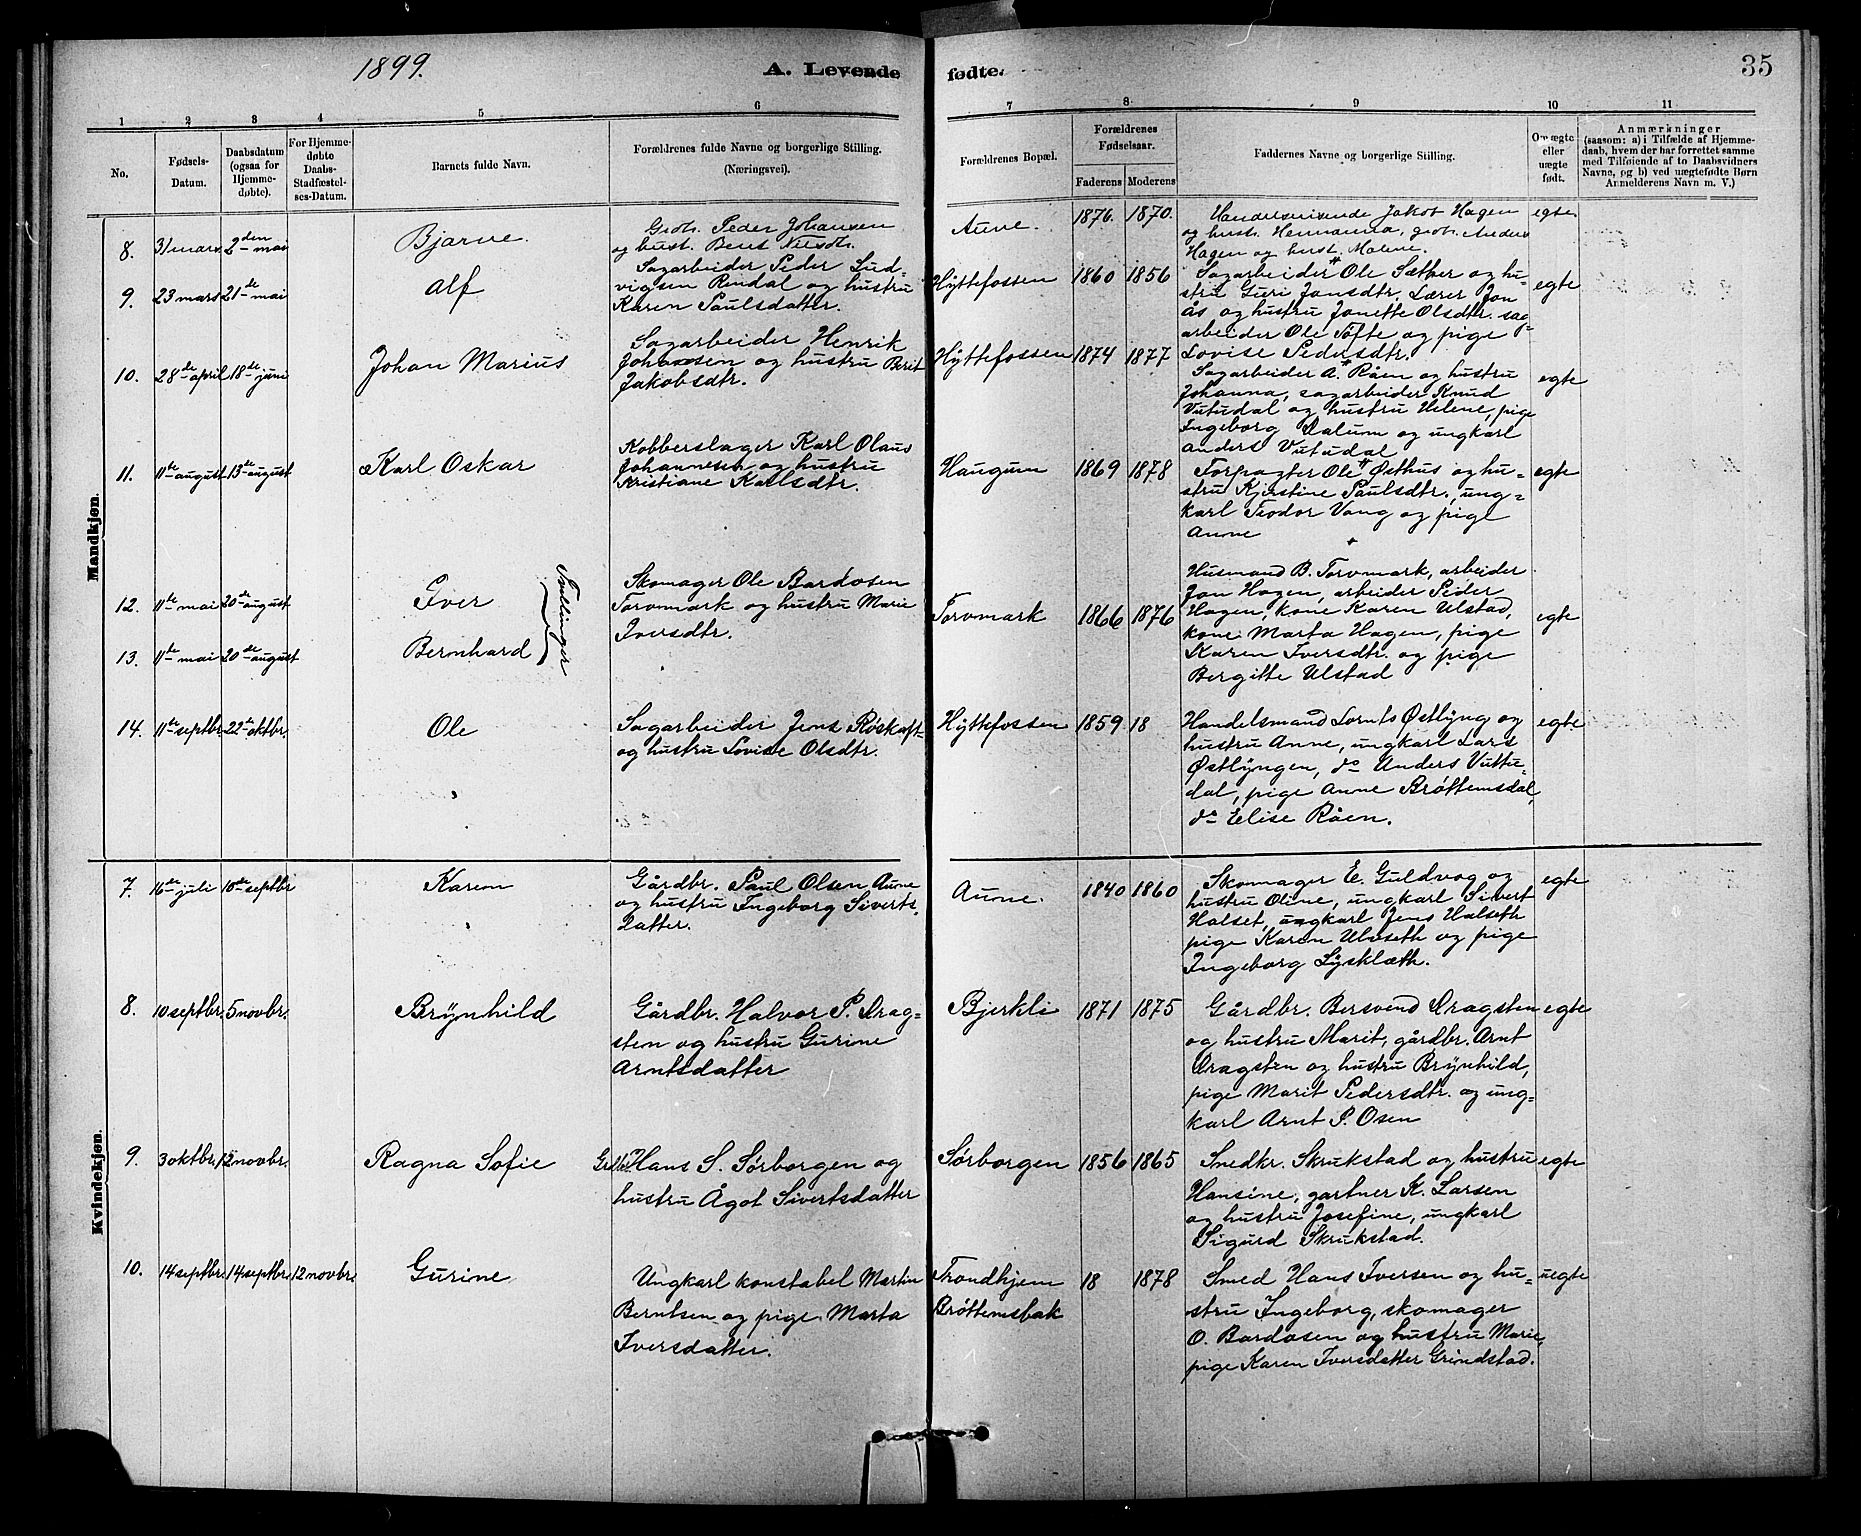 1899.
A. Levende
fødte.
35
1
2
3
4
5
6
7
8
9
10
11
No.
Fødsels-
Datum.
Daabsdatum
(ogsaa for
Hjemme-
døbte).
For Hjemme-
døbte
Daabs-
Stadfæstel-
ses-Datum.
Barnets fulde Navn.
Forældrenes fulde Navne og borgerlige Stilling.
(Næringsvei).
Forældrenes Bopæl.
Forældrenes
Fødselsaar.
Faderens
Moderens
Faddernes Navne og borgerlige Stilling.
Om ægte
eller
uægte
født.
Anmærkninger
(saasom: a) i Tilfælde af Hjemme-
daab, hvem der har forrettet samme
med Tilføiende af to Daabsvidners
Navne, og b) ved uægtefødte Børn
Anmelderens Navn m. V.)
Mandkjøn.
8.
31 mars
2den mai
Bjarne.
Grdb. Peder Johansen
og hust. Berit Nilsdtr.
Aune.
1876.
1870.
Jakob Hagen
og hust. Hermanna, grdb. Anders
Hagen og hust. Malene.
egte.
9.
23 mars
21de mai
Alf
Sagarbeider Peder Lud-
vigsen Rendal og hustru
Karen Paulsdatter.
Hyttefossen
1860
1856
Sagarbeider Ole Sæther og hu-
stru Guri Jonsdtr. Lærer Jon
Ås og hustru Jonette Olsdtr. sag
arbeider Ole Tofte og pige
Lovise Pedersdtr.
egte
10.
28de april
18de juni
Johan Marius
Sagarbeider Henrik
Johansen og hustru Berit
Jakobsdtr.
Hyttefossen
1874
1877
Sagarbeider A. Råen og hustru
Johanna, sagarbeider Knud
Vutudal og hustru Helene, pige
Ingeborg Dalum og ungkarl
Anders Vutudal
egte
11.
11te august
13de august
Karl Oskar
Kobberslager Karl Olaus
Johannesen og hustru
Kristiane Karlsdtr.
Haugum
1869
1878
Forpagter Ole Østhus og hu-
stru Kjerstine Paulsdtr., ung-
karl Teodor Vang og pige
Anne
egte
12.
11te mai
20de august
Iver
Tvillinger
Skomager Ole Bardosen
Torvmark og hustru Marie
Iversdtr.
Torvmark
1866
1876
Husmand B. Torvmark, arbeider
Jon Hagen, arbeider Peder
Hagen, kone Karen Ulstad,
kone Marta Hagen, pige
Karen Iversdtr. og pige
Bergitte Ulstad
egte
13.
11te mai
20de august
Bernhard
14.
11te septbr.
22de oktbr.
Ole
Sagarbeider Jens Røskaft
og hustru Lovise Olsdtr.
Hyttefossen
1859
18
Handelsmand Lornts Østlyng og
hustru Anne, ungkarl Lars
Østlyngen, do Anders Vuttu-
dal, pige Anne Brøttemsdal,
do Elise Råen.
egte
Kvindekjøn.
7.
16de juli
10de septbr
Karen
Gårdbr. Paul Olsen Aune
og hustru Ingeborg Siverts-
datter.
Aune.
1840
1860
Skomager E. Guldvog og
hustru Oline, ungkarl Sivert
Halset, ungkarl Jens Halseth
pige Karen Ulvseth og pige
Ingeborg Lysklæth.
egte
8.
10 septbr.
5 novbr.
Brynhild
Gårdbr. Halvor P. Drag-
sten og hustru Gurine
Arntsdatter
Bjerkli
1871
1875
Gårdbr. Bersvend Dragsten
og hustru Marit, gårdbr. Arnt
Dragsten og hustru Brynhild,
pige Marit Pedersdtr. og ung-
karl Arnt P. Osen
egte
9.
3 oktbr.
12 novbr.
Ragna Sofie
Hans S. Sørborgen og
hustru Ågot Sivertsdatter
Sørborgen
1856
1865
Smedkr. Skrukstad og hustru
Hansine, gartner K. Larsen
og hustru Josefine, ungkarl
Sigurd Skrukstad.
egte
10.
14 septbr.
14 septbr.
12 novbr.
Gurine
Ungkarl konstabel Martin
Berntsen og pige Marta
Iversdatter.
Trondhjem
Brøttemsbak
18
1878
Smed Hans Iversen og hu-
stru Ingeborg, skomager
O. Bardosen og hustru Marie,
pige Karen Iversdatter Grindstad.
uegte